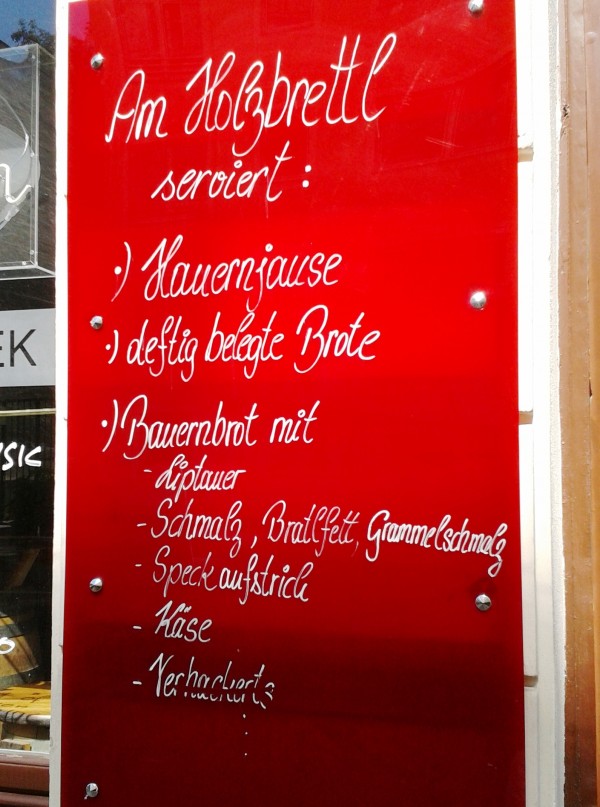 Am Holzbrettl
serviert :
·) Hauernjause
·) deftig belegte Brote
·) Bauernbrot mit
- Liptauer
- Schmalz, Bratlfett, Grammelschmalz
- Speckaufstrich
- Käse
- Verhackerts
EK
SIC